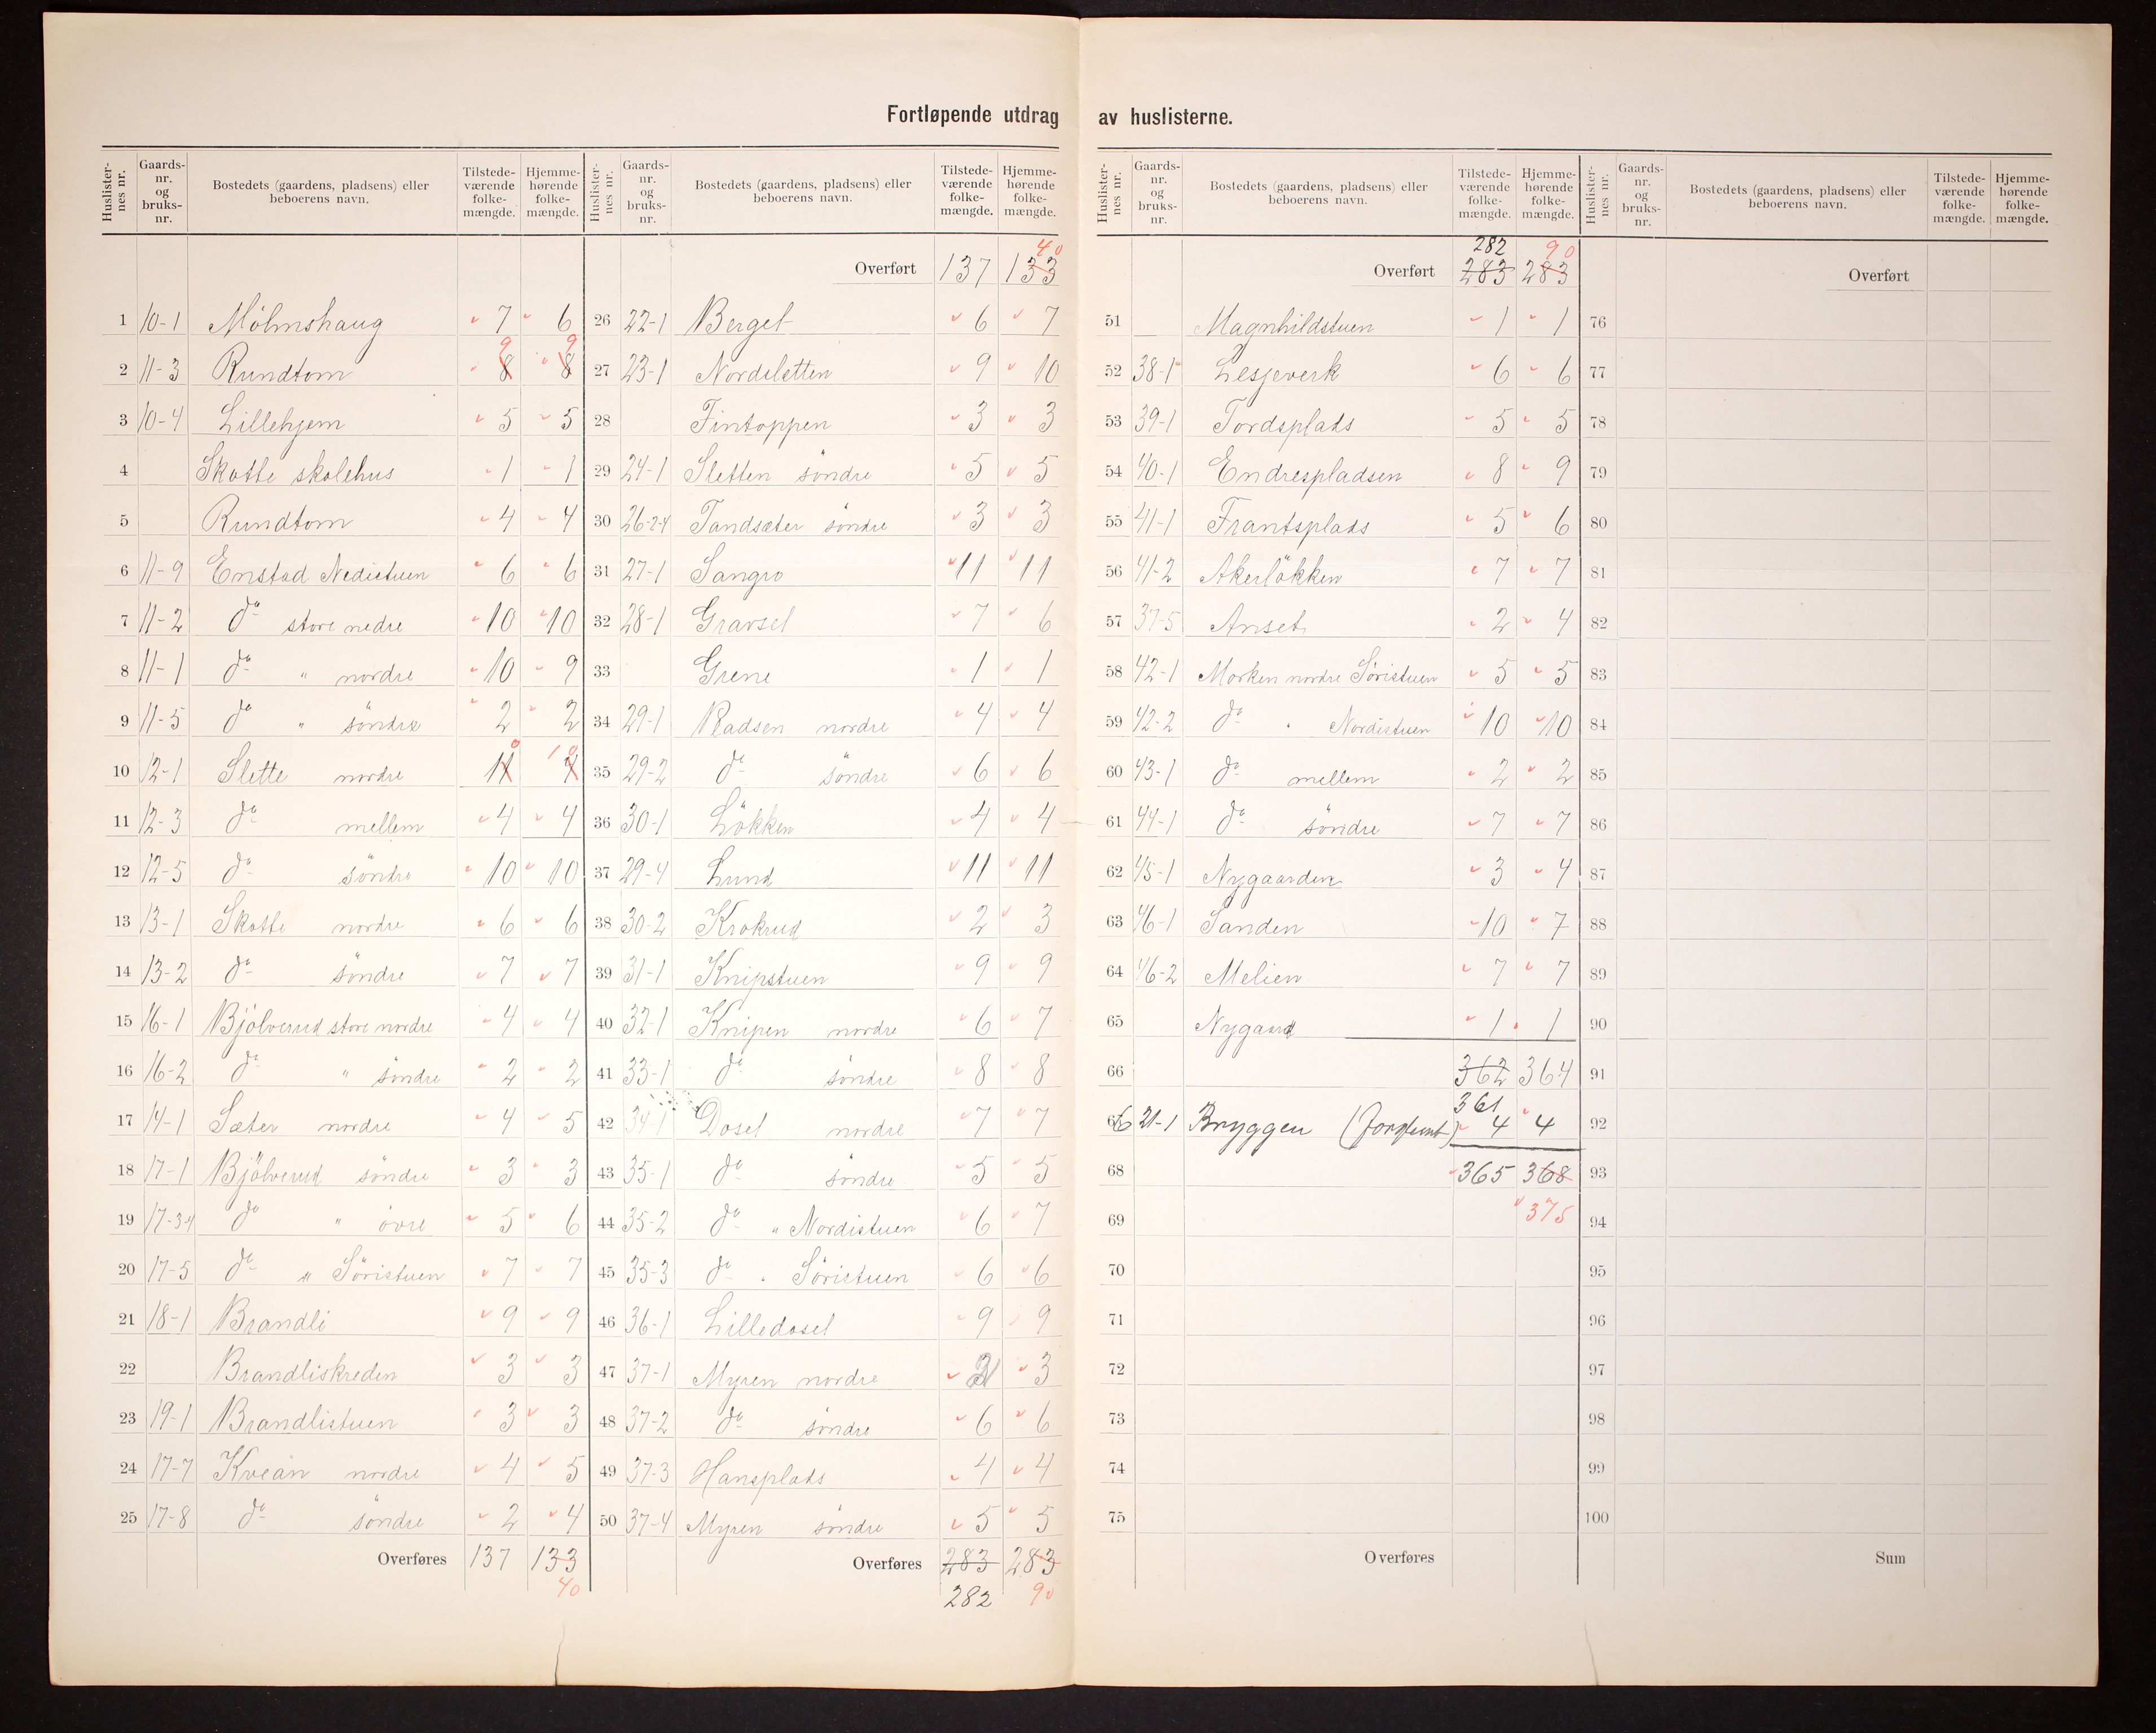 Fortløpende utdrag av huslisterne.
Huslister-nes nr. Gaards-nr. og bruks-nr. Bostedets (gaardens, pladsens) eller beboerens navn. Tilstede-værende folke-mængde. Hjemme-hørende folke-mængde.
1 10-1 Mölmshaug 7 6
2 11-3 Rundtom 8 9 8 9
3 10-4 Lillehjem 5 5
4 Skotte skolehus 1 1
5 Rundtom 4 4
6 11-9 Enstad Nedistuen 6 6
7 11-2 do store nedre 10 10
8 11-1 do " nordre 10 9
9 11-5 do " söndre 2 2
10 12-1 Slette nordre 11 0 4 10
11 12-3 do mellem 4 4
12 12-5 do söndre 10 10
13 13-1 Skotte nordre 6 6
14 13-2 do söndre 7 7
15 16-1 Bjölverud store nordre 4 4
16 16-2 do " söndre 2 2
17 14-1 Sæter nordre 4 5
18 17-1 Bjölverud söndre 3 3
19 17-34 do " övre 5 6
20 17-5 do " Söristuen 7 7
21 18-1 Brandli 9 9
22 Brandliskreden 3 3
23 19-1 Brandlistuen 3 3
24 17-7 Kveàn nordre 4 5
25 17-8 do söndre 2 4
Overføres 137 133
40
Huslister-nes nr. Gaards-nr. og bruks-nr. Bostedets (gaardens, pladsens) eller beboerens navn. Tilstede-værende folke-mængde. Hjemme-hørende folke-mængde.
40
Overført 137 133
26 22-1 Berget 6 7
27 23-1 Nordsletten 9 10
28 Fintoppen 3 3
29 24-1 Sletten söndre 5 5
30 26-2-4 Tandsæter söndre 3 3
31 27-1 Sangro 11 11
32 28-1 Gravsel 7 6
33 Grene 1 1
34 29-1 Radsen nordre 4 4
35 29-2 do söndre 6 6
36 30-1 Lökken 4 4
37 29-4 Lund 11 11
38 30-2 Krokrud 2 3
39 31-1 Knipstuen 9 9
40 32-1 Knipen nordre 6 7
41 33-1 do söndre 8 8
42 34-1 Dosel nordre 7 7
43 35-1 do söndre 5 5
44 35-2 do " Nordistuen 6 7
45 35-3 do " Söristuen 6 6
46 36-1 Lilledosel 9 9
47 37-1 Myren nordre 3
48 37-2 do söndre 6 6
49 37-3 Hansplads 4 4
50 37-4 Myren söndre 5 5
Overføres 283 283
282 90
Huslister-nes nr. Gaards-nr. og bruks-nr. Bostedets (gaardens, pladsens) eller beboerens navn. Tilstede-værende folke-mængde. Hjemme-hørende folke-mængde.
282 90
Overført 283 283
51 Magnhildstuen 1 1
52 38-1 Lesjeverk 6 6
53 39-1 Tordsplads 5 5
54 40-1 Endrespladsen 8 9
55 41-1 Frantsplads 5 6
56 41-2 Akerlökken 7 7
57 37-5 Anset 2 4
58 42-1 Morken nordre Söristuen 5 5
59 42-2 do " Nordistuen 10 10
60 43-1 do mellem 2 2
61 44-1 do söndre 7 7
62 45-1 Nygaarden 3 4
63 46-1 Sanden 10 7
64 46-2 Melien 7 7
65 Nygaard 1 1
66 362 364
361
66 21-1 Bryggen (forglemt) 4 4
68 365 368
69 375
70
71
72
73
74
75
Overføres
Huslister-nes nr. Gaards-nr. og bruks-nr. Bostedets (gaardens, pladsens) eller beboerens navn. Tilstede-værende folke-mængde. Hjemme-hørende folke-mængde.
Overført
76
77
78
79
80
81
82
83
84
85
86
87
88
89
90
91
92
93
94
95
96
97
98
99
100
Sum